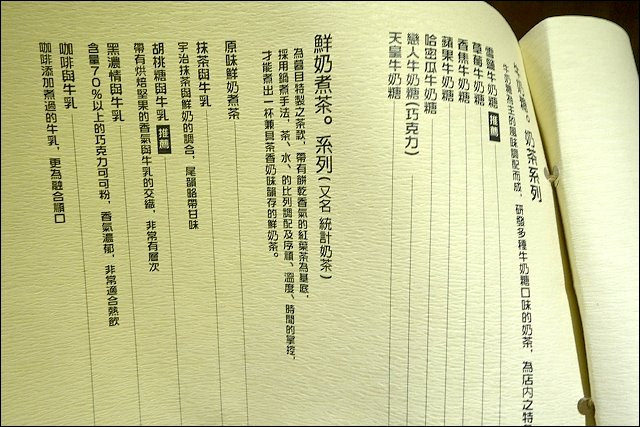 牛奶糖。奶茶系列
牛奶糖為主的風味調配而成，研發多種牛奶糖口味的奶茶，為店內之特
雪鹽牛奶糖 推薦
草莓牛奶糖
香蕉牛奶糖
蘋果牛奶糖
哈密瓜牛奶糖
戀人牛奶糖(巧克力)
天皇牛奶糖
鮮奶煮茶。系列(又名 統計奶茶)
為首目特製之茶款，帶有餅乾香氣的紅葉茶為基底，
採用鍋煮手法，茶、水、的比列調配及序順、溫度、時間的掌控，
才能煮出一杯兼具茶香奶味韻存的鮮奶茶。
原味鮮奶煮茶
抹茶與牛乳
宇治抹茶與鮮奶的調合，尾韻略帶甘味
胡桃糖與牛乳 推薦
帶有烘焙堅果的香氣與牛乳的交織，非常有層次
黑濃情與牛乳
含量70%以上的巧克力可可粉，香氣濃郁，非常適合熱飲
咖啡與牛乳
咖啡添加煮過的牛乳，更為融合順口